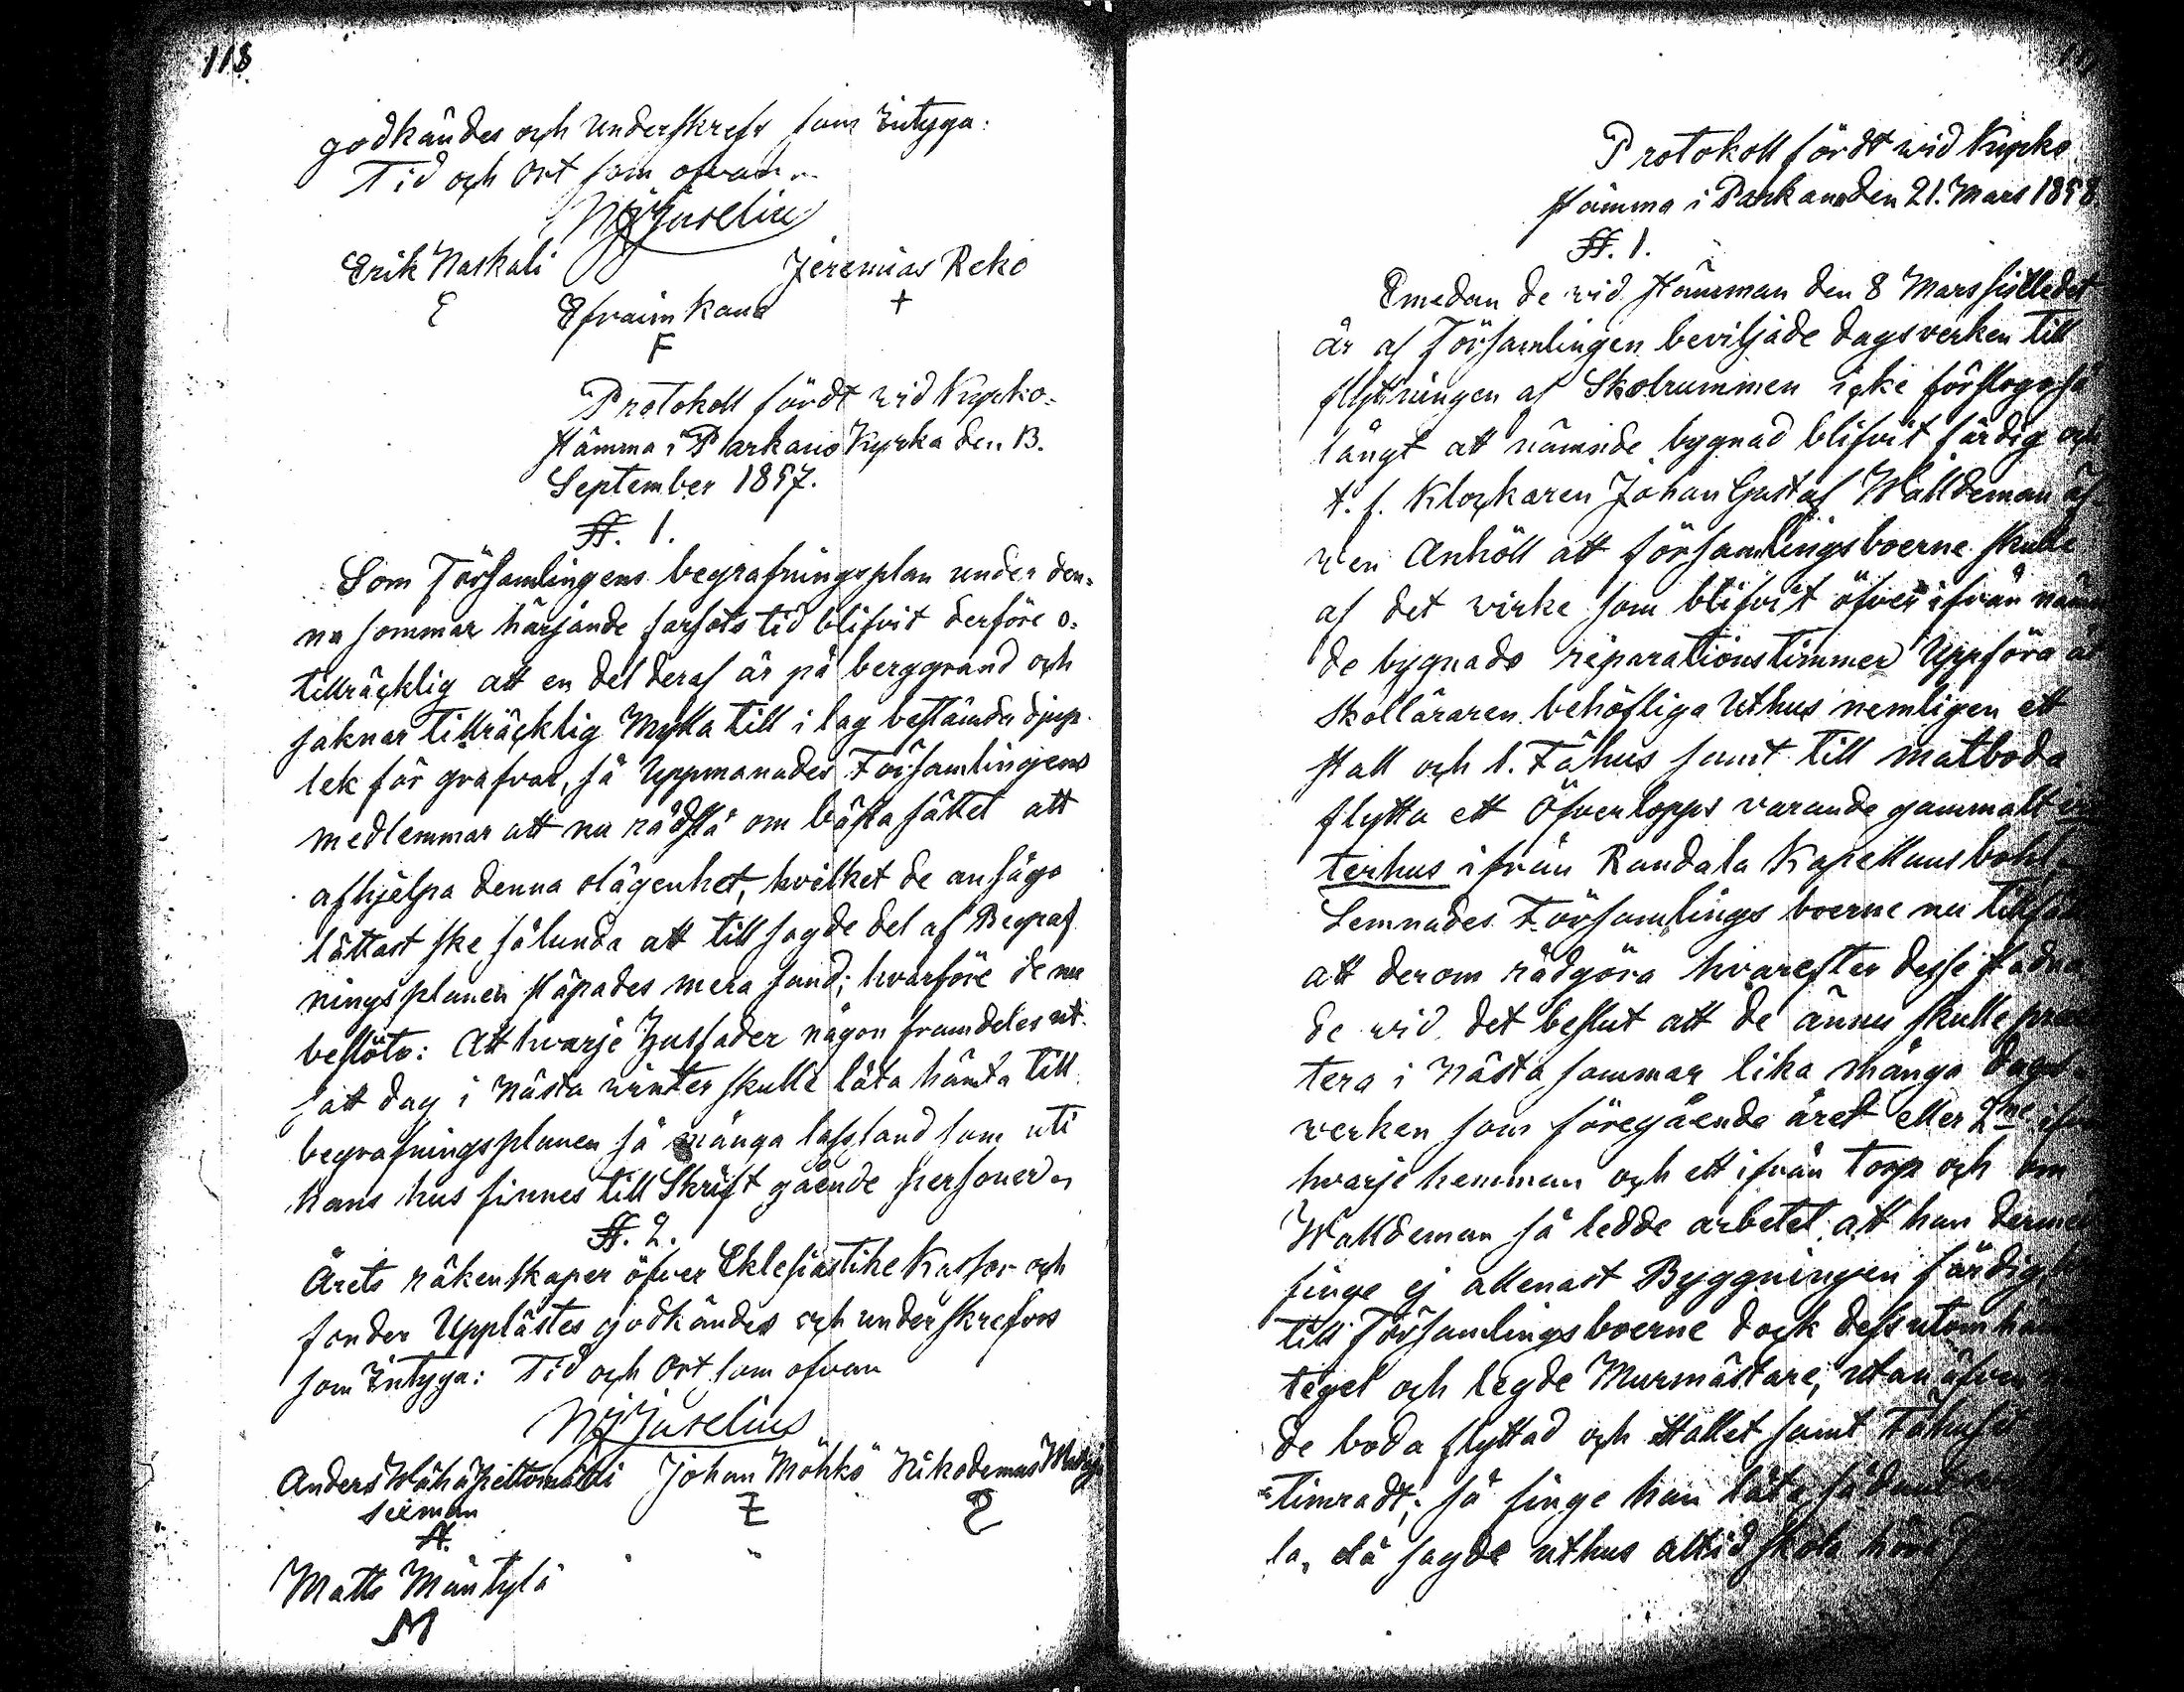 118
godkändes och underskrefs som Intyga:
Tid och Ort som ofvan
N J Juselius
Erik Naskali Jeremias Reko
E Efraim Kana +
F
Protokoll fördt wid Kyrko=
stämma i Parkano Kyrka den 13.
September 1857.
§. 1.
Som Församlingens begrafningsplan under den=
na sommar härjande farsots tid blifvit derföre o=
tillräcklig att en del deraf är på berggrund och
saknar tillräcklig Mylla till i lag bestämda djup=
lek för grafvar, så Uppmanades Församlingens
medlemmar att nu rådslå om bästa sättet att
afhjelpa denna olägenhet, hvilket de ansågo
lättast ske sålunda att till sagde del af Begraf
ningsplanen släpades mera sand; hvarföre de nu
beslöto: Att hvarje Husfader någon framdeles ut=
satt dag i Nästa winter skulle låta hämta till
begrafningsplanen så många lass sand som uti
hans hus finnes till Skrift gående personer.
§. 2.
Årets räkenskaper öfver Eklesiastike Kassor och
fonder Upplästes godkändes och underskrefvos
som Intyga: Tid och Ort som ofvan
N J Juselius
Anders Wähä Johan Möhkö Nikodemus
M
Matts Mäntylä
M
Protokoll fördt wid Kyrko
stämma i Parkano den 21. Mars 1858
§. 1.
Emedan de wid Stämman den 8 Mars sistledet
år af Församlingen beviljade dagsverken till
flyttningen af Skolrummen icke förslogo så
långt att nämnde bygnad blifvit färdig och
t. f. Klockaren Johan Gustaf Walldeman äf
ven Anhöll att församlingsboerne skulle
af det virke som blifvit öfver ifrån näm
de bygnads reparationstimmer Uppföra åt
Skolläraren behöfliga Uthus nemligen ett
stall och 1. Fähus samt till matboda
flytta ett Öfverlopps varande gammalt
terhus ifrån Randala Kapellansbohl
Lemnades Församlings boerne nu tillfälle
att derom rådgöra hvarefter desse stadna
de wid det beslut att de ännu skulle pres
tera i Nästa sommar lika många dags=
verken som föregående året eller 2ne ifrån
hvarje hemman och ett ifrån torp och om
Walldeman så ledde arbetet att han dermed
finge ej allenast Byggningen färdig,
till Församlingsboerne dock dessutom
tegel och legde Murmästare, utan äfven
de boda flyttad och stallet samt Fähuset
timradt; så finge han låta sådant
la, då sagde uthus alltid skola höra